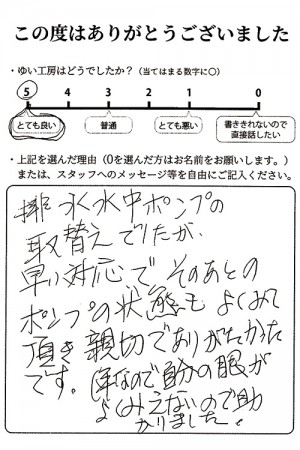 この度はありがとうございました
・ゆい工房はどうでしたか？（当てはまる数字に○）
5 4 3 2 1 0
とても良い 普通 とても悪い 書ききれないので
直接話したい
・上記を選んだ理由（0を選んだ方はお名前をお願いします。）
または、スタッフへのメッセージ等を自由にご記入ください。
排水水中ポンプの
取替えでしたが、
早い対応で そのあとの
ポンプの状態も よくみて
頂き 親切でありがたかった
です。 年なので自分の眼が
よくみえないので助
かりました。